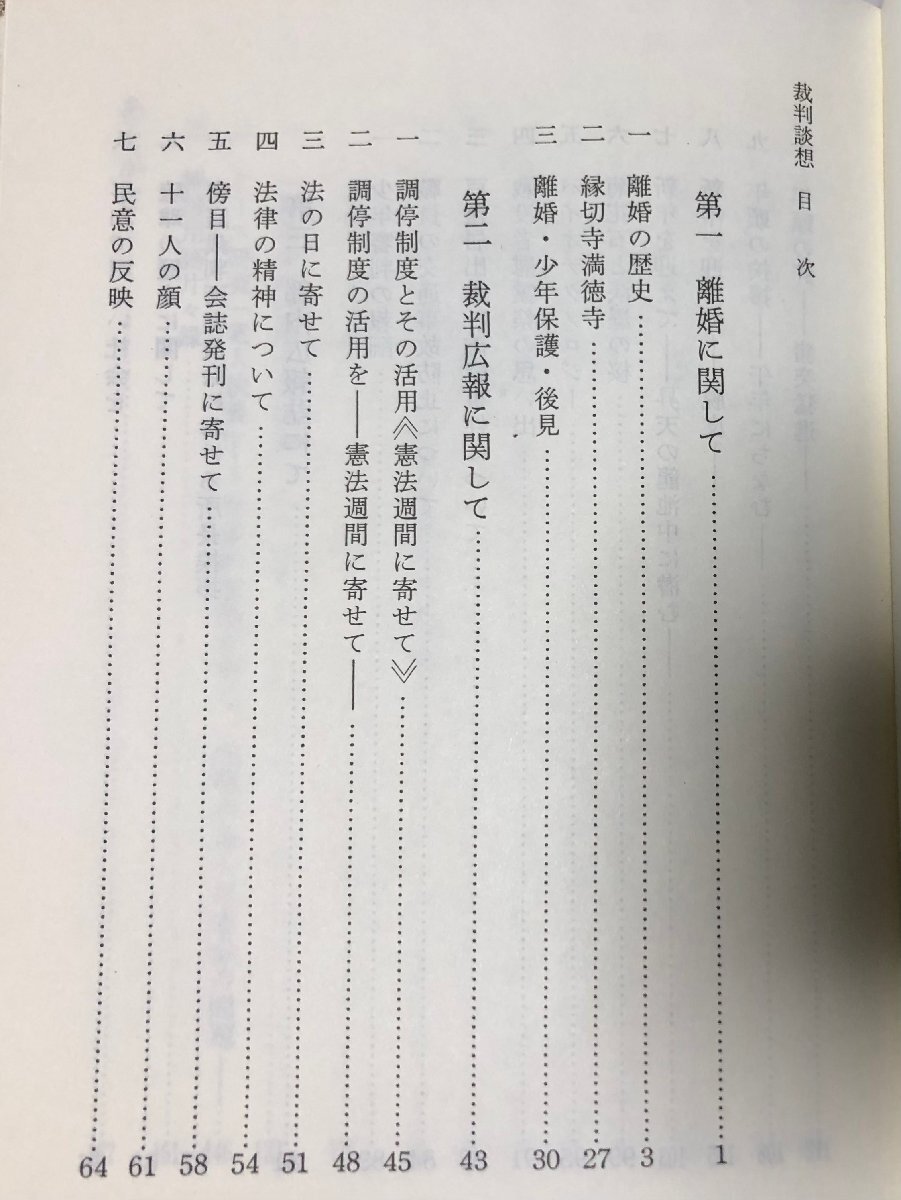 裁判談想 目次
第一 離婚に関して……1
一 離婚の歴史……3
二 縁切寺満徳寺……27
三 離婚・少年保護・後見……30
第二 裁判広報に関して……43
一 調停制度とその活用≪憲法週間に寄せて≫……45
二 調停制度の活用を――憲法週間に寄せて――……48
三 法の日に寄せて……51
四 法律の精神について……54
五 傍目――会誌発刊に寄せて……58
六 十一人の顔……61
七 民意の反映……64